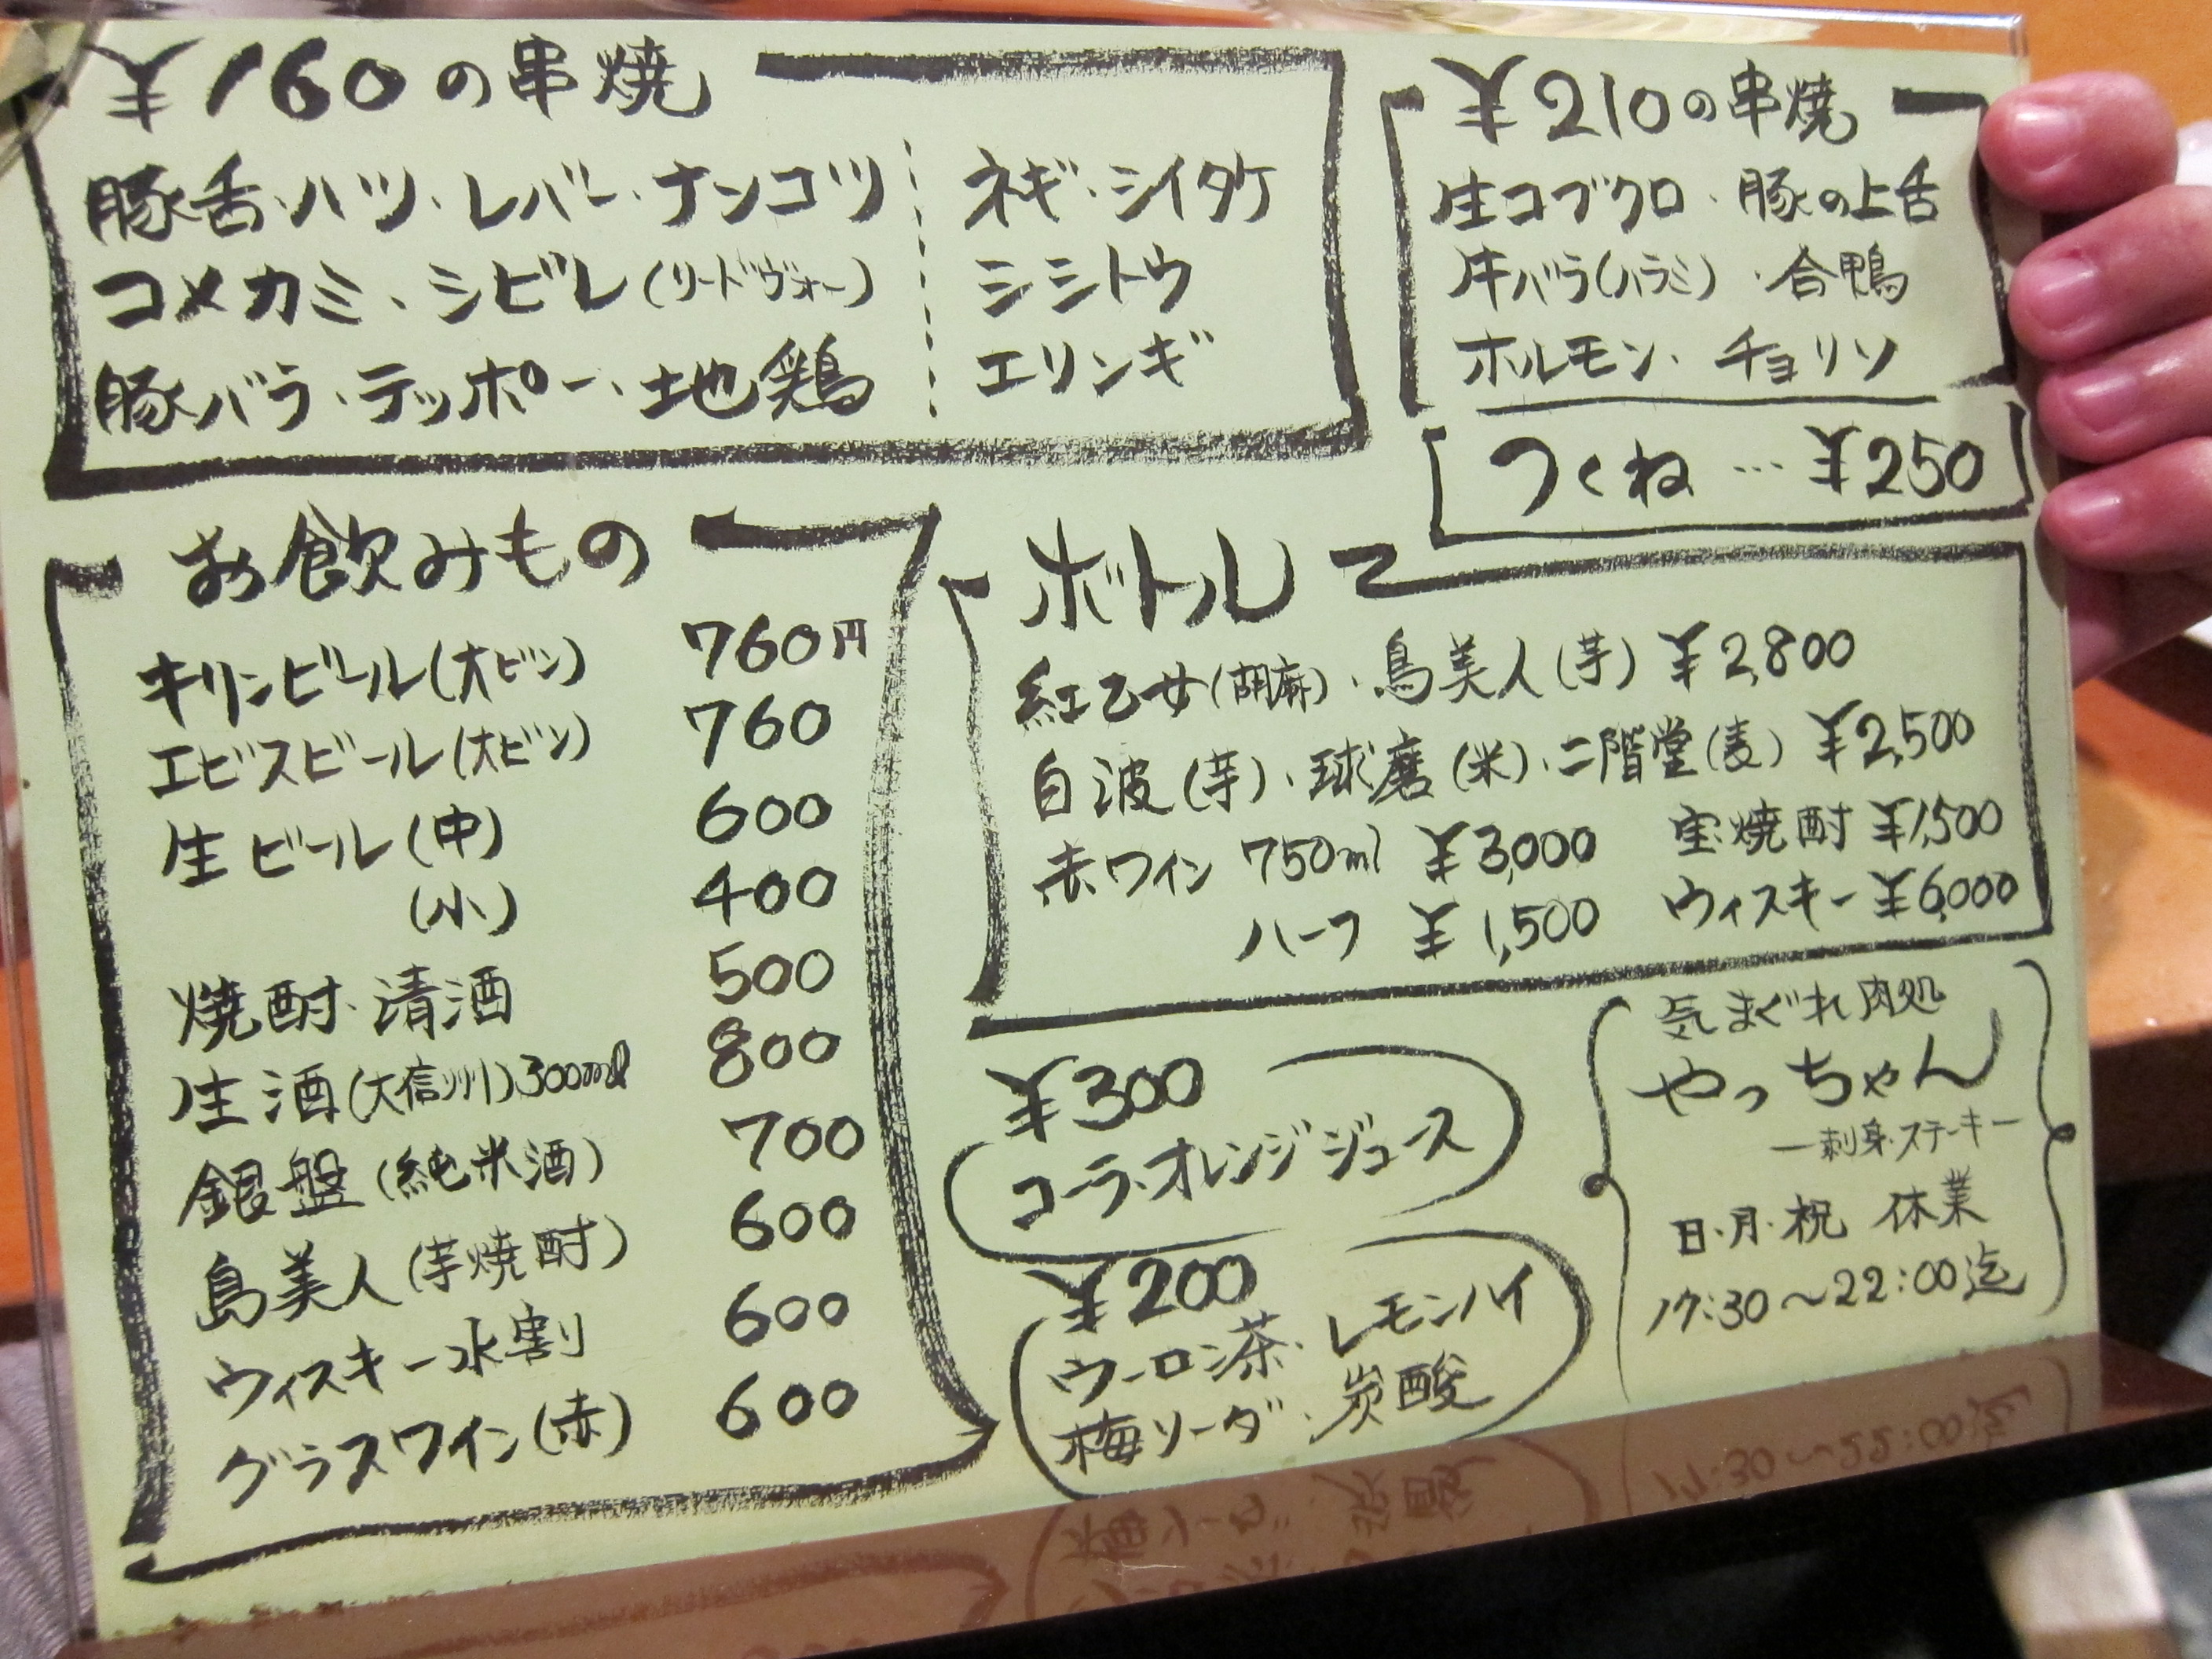 ¥160の串焼
豚舌・ハツ・レバー・ナンコツ
コメカミ・シビレ(リードヴォー)
豚バラ・テッポー・地鶏
ネギ・シイタケ
シシトウ
エリンギ
¥210の串焼
生コブクロ・豚の上舌
牛バラ(ハラミ)・合鴨
ホルモン・チョリソ
つくね…¥250
お飲みもの
キリンビール(大ビン) 760円
エビスビール(大ビン) 760
生ビール(中) 600
(小) 400
焼酎・清酒 500
生酒(大信州)300ml 800
銀盤(純米酒) 700
島美人(芋焼酎) 600
ウィスキー水割 600
グラスワイン(赤) 600
ボトル
紅乙女(胡麻)・島美人(芋) ¥2,800
白波(芋)・球磨(米)・二階堂(麦) ¥2,500
赤ワイン 750ml ¥3,000
ハーフ ¥1,500
宝焼酎 ¥1,500
ウィスキー ¥6,000
¥300
コーラ・オレンジジュース
¥200
ウーロン茶・レモンハイ
梅ソーダ・炭酸
気まぐれ肉処
やっちゃん
ー刺身・ステーキー
日・月・祝 休業
17:30〜22:00迄